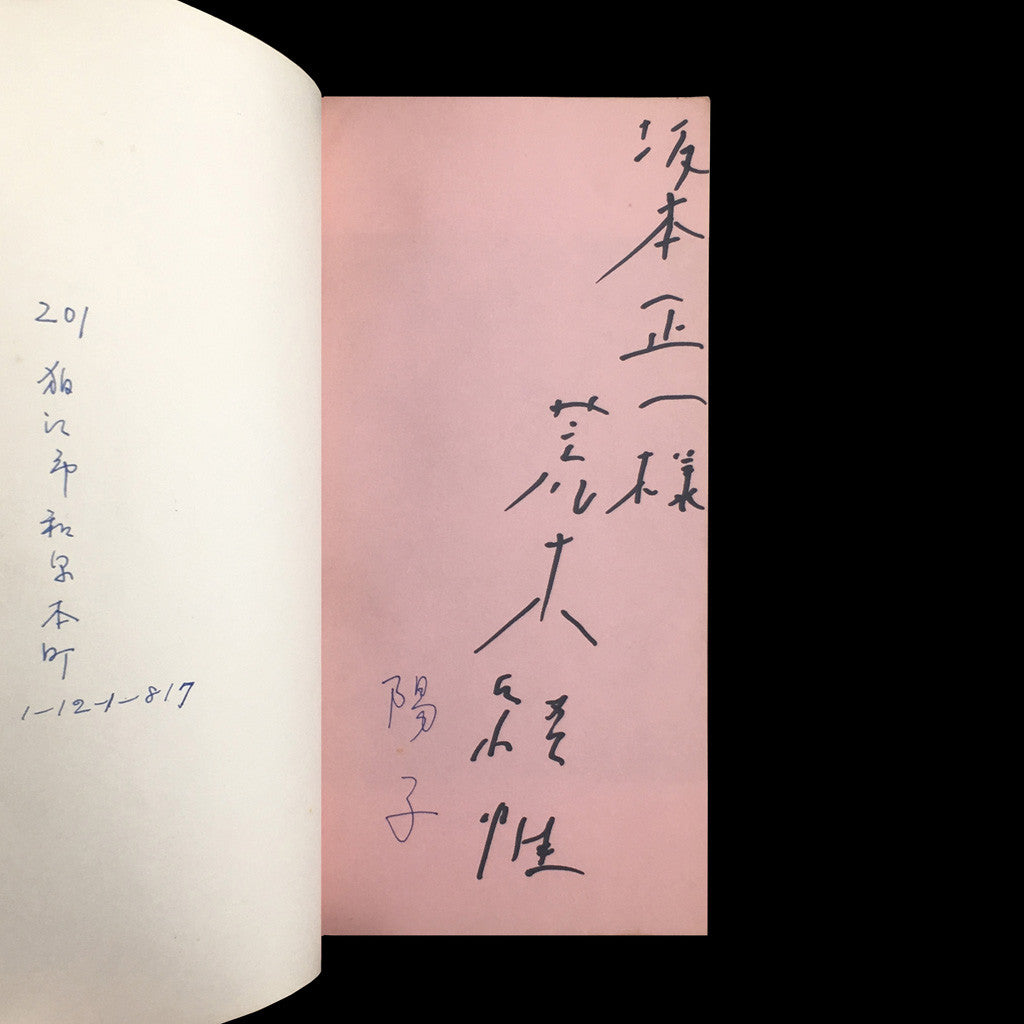 坂本正一様
荒木経惟
陽子
201
狛江市和泉本町
1-12-1-817